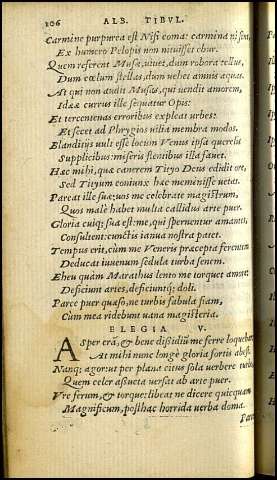 106 ALB. TIBVL.
Carmine purpurea est Nisi coma: carmina ni sint,
Ex humero Pelopis non nituisset ebur.
Quem referent Musæ, uiuet, dum robora tellus,
Dum cœlum stellas, dum uehet amnis aquas.
At qui non audit Musas, qui uendit amorem,
Idææ currus ille sequatur Opis:
Et tercentenas erroribus expleat urbes:
Et secet ad Phrygios uilia membra modos.
Blanditijs uult esse locum Venus ipsa querelis
Supplicibus: miseris flentibus illa fauet.
Hæc mihi, quæ canerem Titio Deus edidit ore,
Sed Tityum coniunx hæc meminisse uetat.
Pareat ille suæ: uos me celebrate magistrum,
Quos malè habet multa callidus arte puer.
Gloria cuiq; sua est: me, qui spernentur amantes
Consultent: cunctis ianua nostra patet.
Tempus erit, cùm me Veneris præcepta ferentem
Deducat iuuenum sedula turba senem.
Eheu quàm Marathus lento me torquet amore:
Deficiunt artes, deficiuntq; doli.
Parce puer quæso, ne turbis fabula fiam,
Cum mea ridebunt uana magisteria.
ELEGIA V.
ASper erã, & bene dissidiũ me ferre loquebar,
At mihi nunc longè gloria fortis abest.
Nanq; agor: ut per plana citus sola uerbere turbo,
Quem celer assueta uersat ab arte puer.
Vre ferum, & torque: libeat ne dicere quicquam
Magnificum, posthac horrida uerba doma.